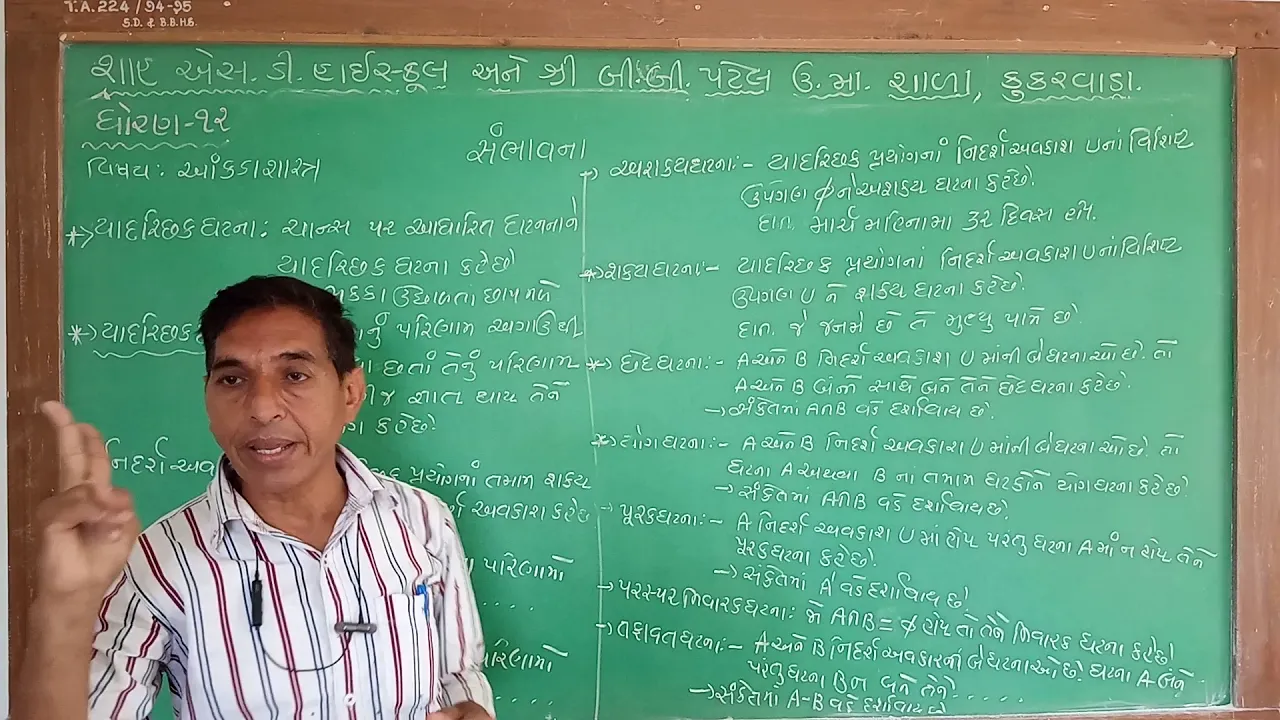 T.A. 224 / 94-95
S.D. & B.B.H.S.
શાહ એસ. ડી. હાઈસ્કૂલ અને શ્રી બી.બી. પટેલ ઉ. મા. શાળા, કુકરવાડા.
ધોરણ-૧૨
સંભાવના
વિષય: આંકડાશાસ્ત્ર
*→ યાદચ્છિક ઘટના: ચાન્સ પર આધારિત ઘટનાને
યાદચ્છિક ઘટના કહેછે
સિક્કા ઉછાળતાં છાપ મળે
*→ યાદચ્છિક નું પરિણામ અગાઉથી
છતાં તેનું પરિણામ
જ જ્ઞાત થાય તેને
કહેછે
નિદર્શ અવ પ્રયોગનાં તમામ શક્ય
અવકાશ કહેછે
પરિણામો
. . . .
પરિણામો
. . . .
→ અશક્યઘટના:- યાદચ્છિક પ્રયોગનાં નિદર્શ અવકાશ U નાં વિશિષ્ટ
ઉપગણ ϕ ને અશક્ય ઘટના કહેછે.
દા.ત. માર્ચ મહિનામા 32 દિવસ હોય.
*→ શક્યઘટના:- યાદચ્છિક પ્રયોગનાં નિદર્શ અવકાશ U નાં વિશિષ્ટ
ઉપગણ U ને શક્ય ઘટના કહેછે.
દા.ત. જે જનમે છે તે મૃત્યુ પામે છે.
*→ છેદઘટના:- A અને B નિદર્શ અવકાશ U માંની બે ઘટના ઓ છે. તો
A અને B બંને સાથે બને તેને છેદઘટના કહેછે.
→ સંકેતમાં A∩B વડે દર્શાવાય છે.
*→ યોગઘટના:- A અને B નિદર્શ અવકાશ U માંની બે ઘટના ઓ છે. તો
ઘટના A અથવા B નાં તમામ ઘટકોને યોગઘટના કહેછે.
→ સંકેતમાં A∩B વડે દર્શાવાય છે.
→ પૂરકઘટના:- A નિદર્શ અવકાશ U માં હોય પરંતુ ઘટના A માં ન હોય તેને
પૂરકઘટના કહેછે.
→ સંકેતમાં A' વડે દર્શાવાય છે.
→ પરસ્પર નિવારકઘટના: જો A∩B = ϕ હોય તો તેને નિવારક ઘટના કહેછે.
→ તફાવતઘટના:- A અને B નિદર્શ અવકાશનાં બે ઘટનાઓ છે. ઘટના A બને
પરંતુ ઘટના B ન બને તેને . . . . .
→ સંકેતમાં A-B વડે દર્શાવાય છે